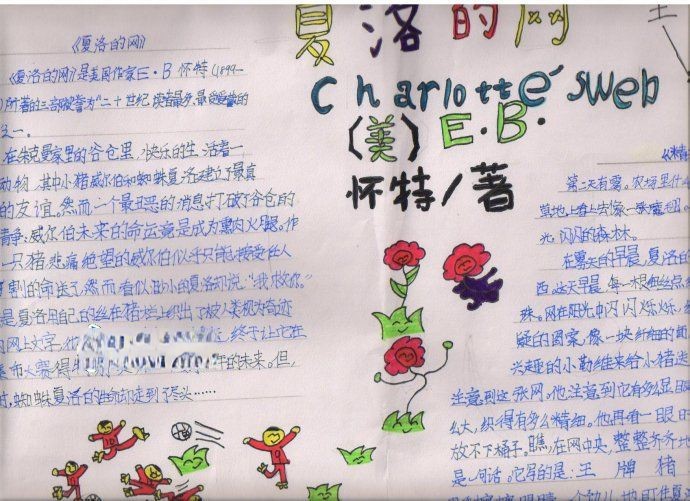 《夏洛的网》
《夏洛的网》是美国作家E·B怀特(1899—
)所著的三部被誉为"二十世纪读者最多、最受爱戴的
之一。
在朱克曼家里的谷仓里,快乐的生活着一
动物,其中小猪威尔伯和蜘蛛夏洛建立了最真
的友谊。然而一个最丑恶的消息打破了谷仓的
静:威尔伯未来的命运竟是成为熏肉火腿。作
一只猪,悲痛绝望的威尔伯似乎只能接受任人
割的命运了,然而看似渺小的夏洛却说:"我救你。"
是夏洛用自己的丝在猪栏上织出了被人类视为奇迹
网上文字,
终于让它在
集市大赛
的未来。但,
时,蜘蛛夏洛的生命却走到了尽头……
夏洛的网
Charlotte'sWeb
(美)E.B.
怀特/著
王
《精
第二天有雾。农场里什
草地上看上去像一张魔毯。
光闪闪的森林。
在雾天的早晨,夏洛的
西。这天早晨,每一根细丝
珠。网在阳光中闪闪烁烁,
疑的图案,像一块纤细的面
兴趣的小勒维来给小猪送
注意到这张网。他注意到它有多么显眼
么大,织得有多么精细。他再看一眼时
放不下桶子。瞧,在网中央,整整齐齐地
是一句话。它写的是:王牌猪